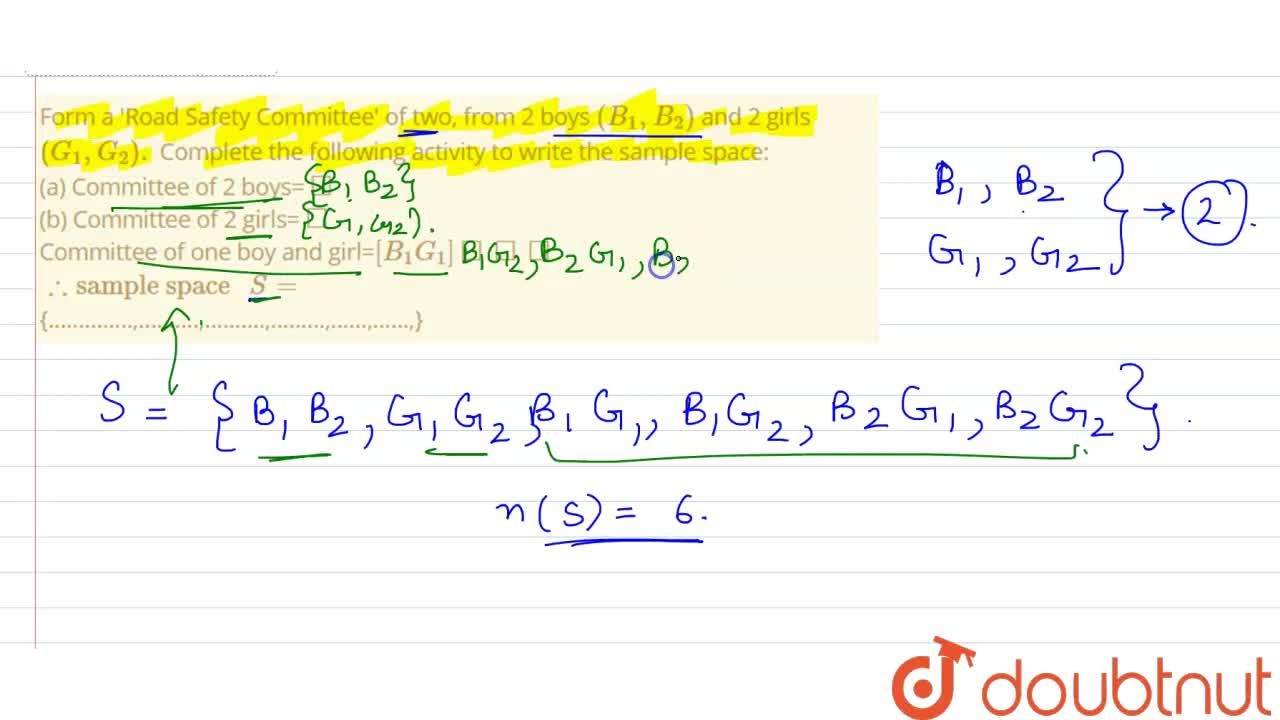 Form a 'Road Safety Committee' of two, from 2 boys (B₁, B₂) and 2 girls
(G₁, G₂). Complete the following activity to write the sample space:
(a) Committee of 2 boys= {B₁ B₂}
(b) Committee of 2 girls= {G₁, G₂}.
Committee of one boy and girl=[B₁G₁] B₁G₂, B₂ G₁, B,
∴ sample space S =
{..............,..........,..........,.........,......,......,}
B₁, B₂
G₁, G₂ } → 2.
S = {B₁ B₂, G₁ G₂, B₁ G₁, B₁G₂, B₂ G₁, B₂ G₂}.
n(S) = 6.
doubtnut